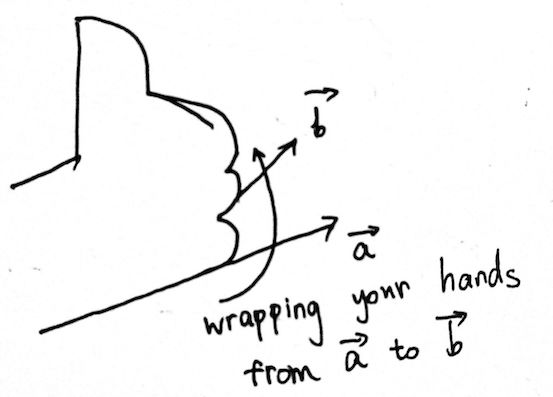 b⃗
a⃗
wrapping your hands
from a⃗ to b⃗